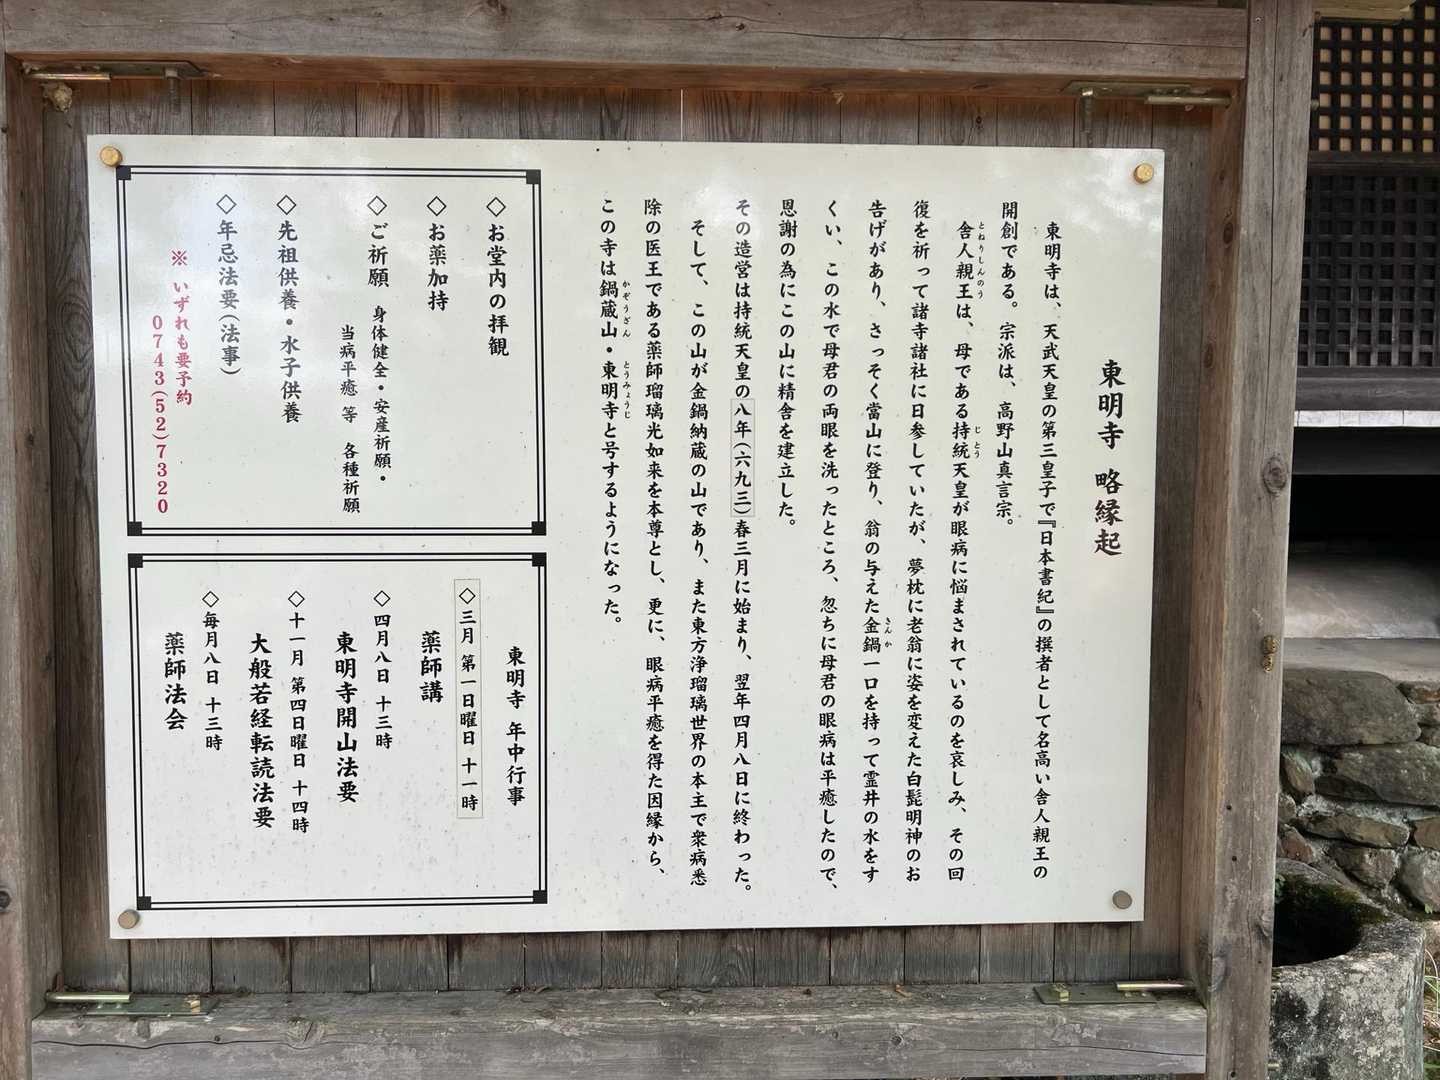 東明寺 略縁起
東明寺は、天武天皇の第三皇子で『日本書紀』の撰者として名高い舎人親王の
開創である。宗派は、高野山真言宗。
舎人親王は、母である持統天皇が眼病に悩まされているのを哀しみ、その回
とねりしんのう
じとう
復を祈って諸寺諸社に日参していたが、夢枕に老翁に姿を変えた白髭明神のお
告げがあり、さっそく當山に登り、翁の与えた金鍋一口を持って霊井の水をす
きんか
くい、この水で母君の両眼を洗ったところ、忽ちに母君の眼病は平癒したので、
恩謝の為にこの山に精舎を建立した。
その造営は持統天皇の八年(六九三)春三月に始まり、翌年四月八日に終わった。
そして、この山が金鍋納蔵の山であり、また東方浄瑠璃世界の本主で衆病悉
除の医王である薬師瑠璃光如来を本尊とし、更に、眼病平癒を得た因縁から、
この寺は鍋蔵山・東明寺と号するようになった。
かぞうざん
とうみょうじ
◇お堂内の拝観
◇お薬加持
◇ご祈願 身体健全・安産祈願・
当病平癒 等 各種祈願
◇先祖供養・水子供養
◇年忌法要(法事)
※ いずれも要予約
0743(52)7320
東明寺 年中行事
◇三月 第一日曜日 十一時
薬師講
◇四月八日 十三時
東明寺開山法要
◇十一月 第四日曜日 十四時
大般若経転読法要
◇毎月八日 十三時
薬師法会